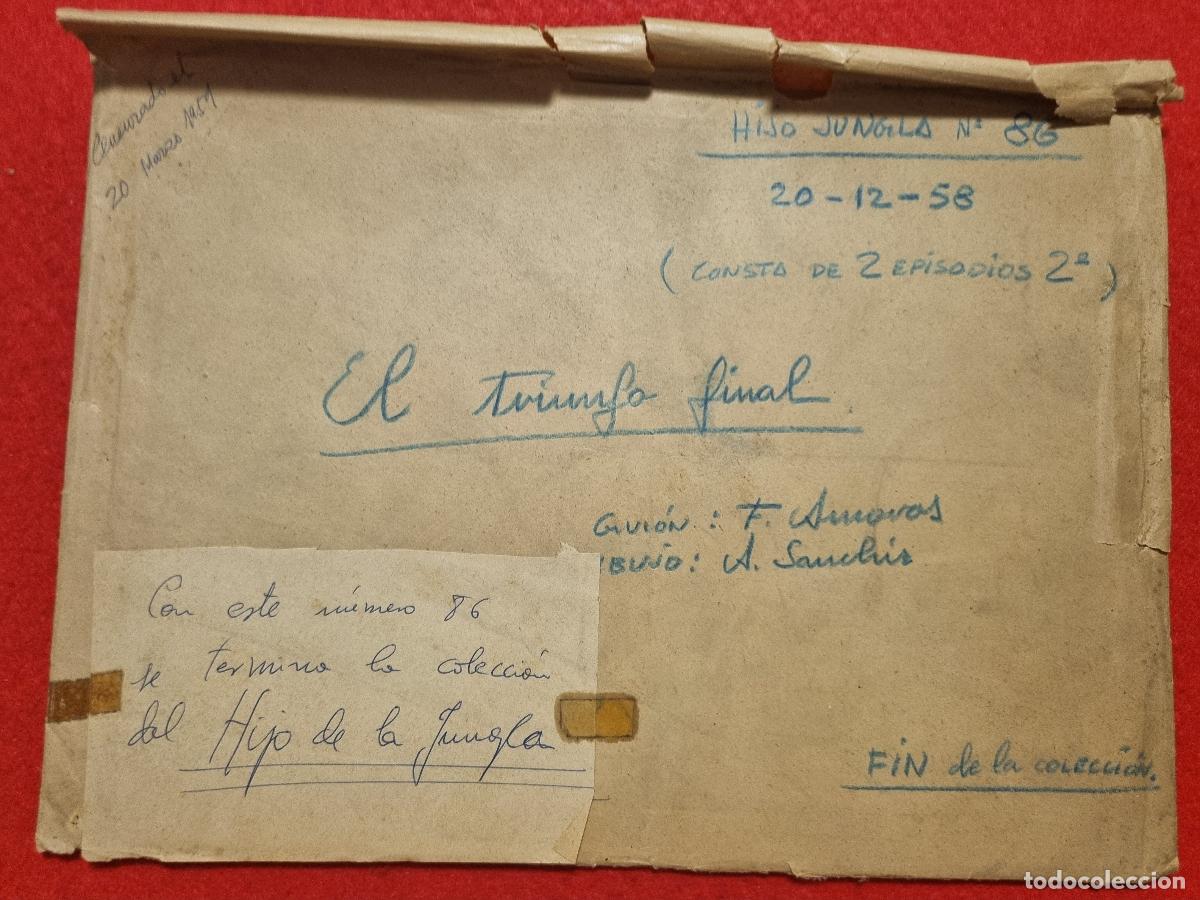 Censurado el
20 Marzo 1957
HIJO JUNGLA Nº 86
20-12-58
(CONSTA DE 2 EPISODIOS 2º)
El triunfo final
GUIÓN: F. Amoros
IBUJO: A. Sanchis
Con este número 86
se termina la colección
del Hijo de la Jungla
FIN de la COLECCIÓN.
todocoleccion